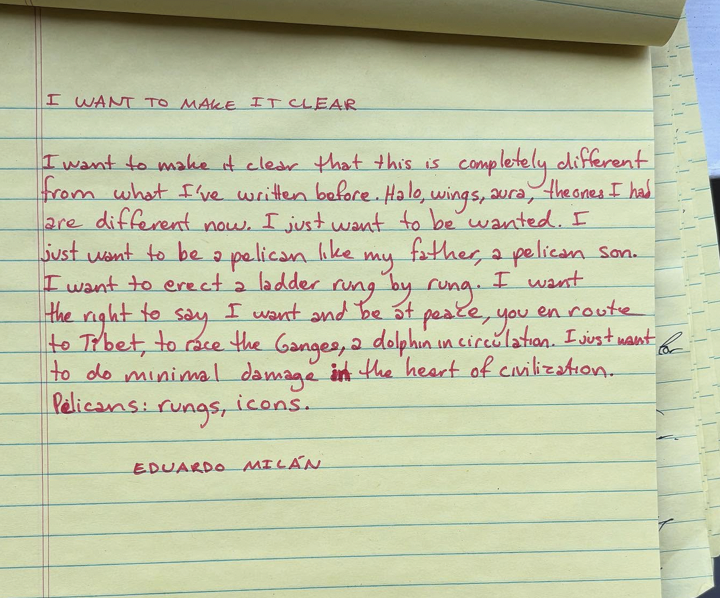 I WANT TO MAKE IT CLEAR
I want to make it clear that this is completely different
from what I've written before. Halo, wings, aura, the ones I had
are different now. I just want to be wanted. I
just want to be a pelican like my father, a pelican son.
I want to erect a ladder rung by rung. I want
the right to say I want and be at peace, you en route
to Tibet, to race the Ganges, a dolphin in circulation. I just want
to do minimal damage in the heart of civilization.
Pelicans: rungs, icons.
EDUARDO MILÁN
for